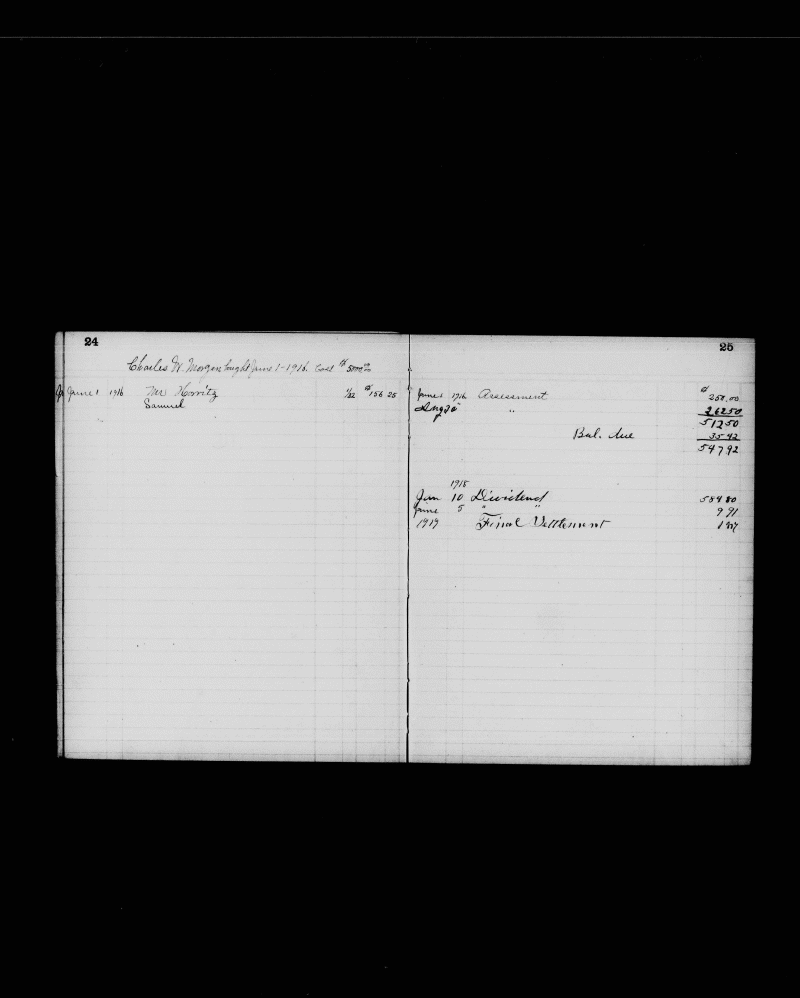 24
Charles W. Morgan bought June 1-1916. Cost $5000 00/00
June 1 1916 Mr Horvitz 1/32 $156 25
Samuel
25
June 1 1916 Assessment $ 250.00
Aug 30 " 262 50
512 50
Bal. due 35 42
547 92
1918
Jun 10 Dividend 584 80
June 5 " " 9 91
1919 Final Settlement